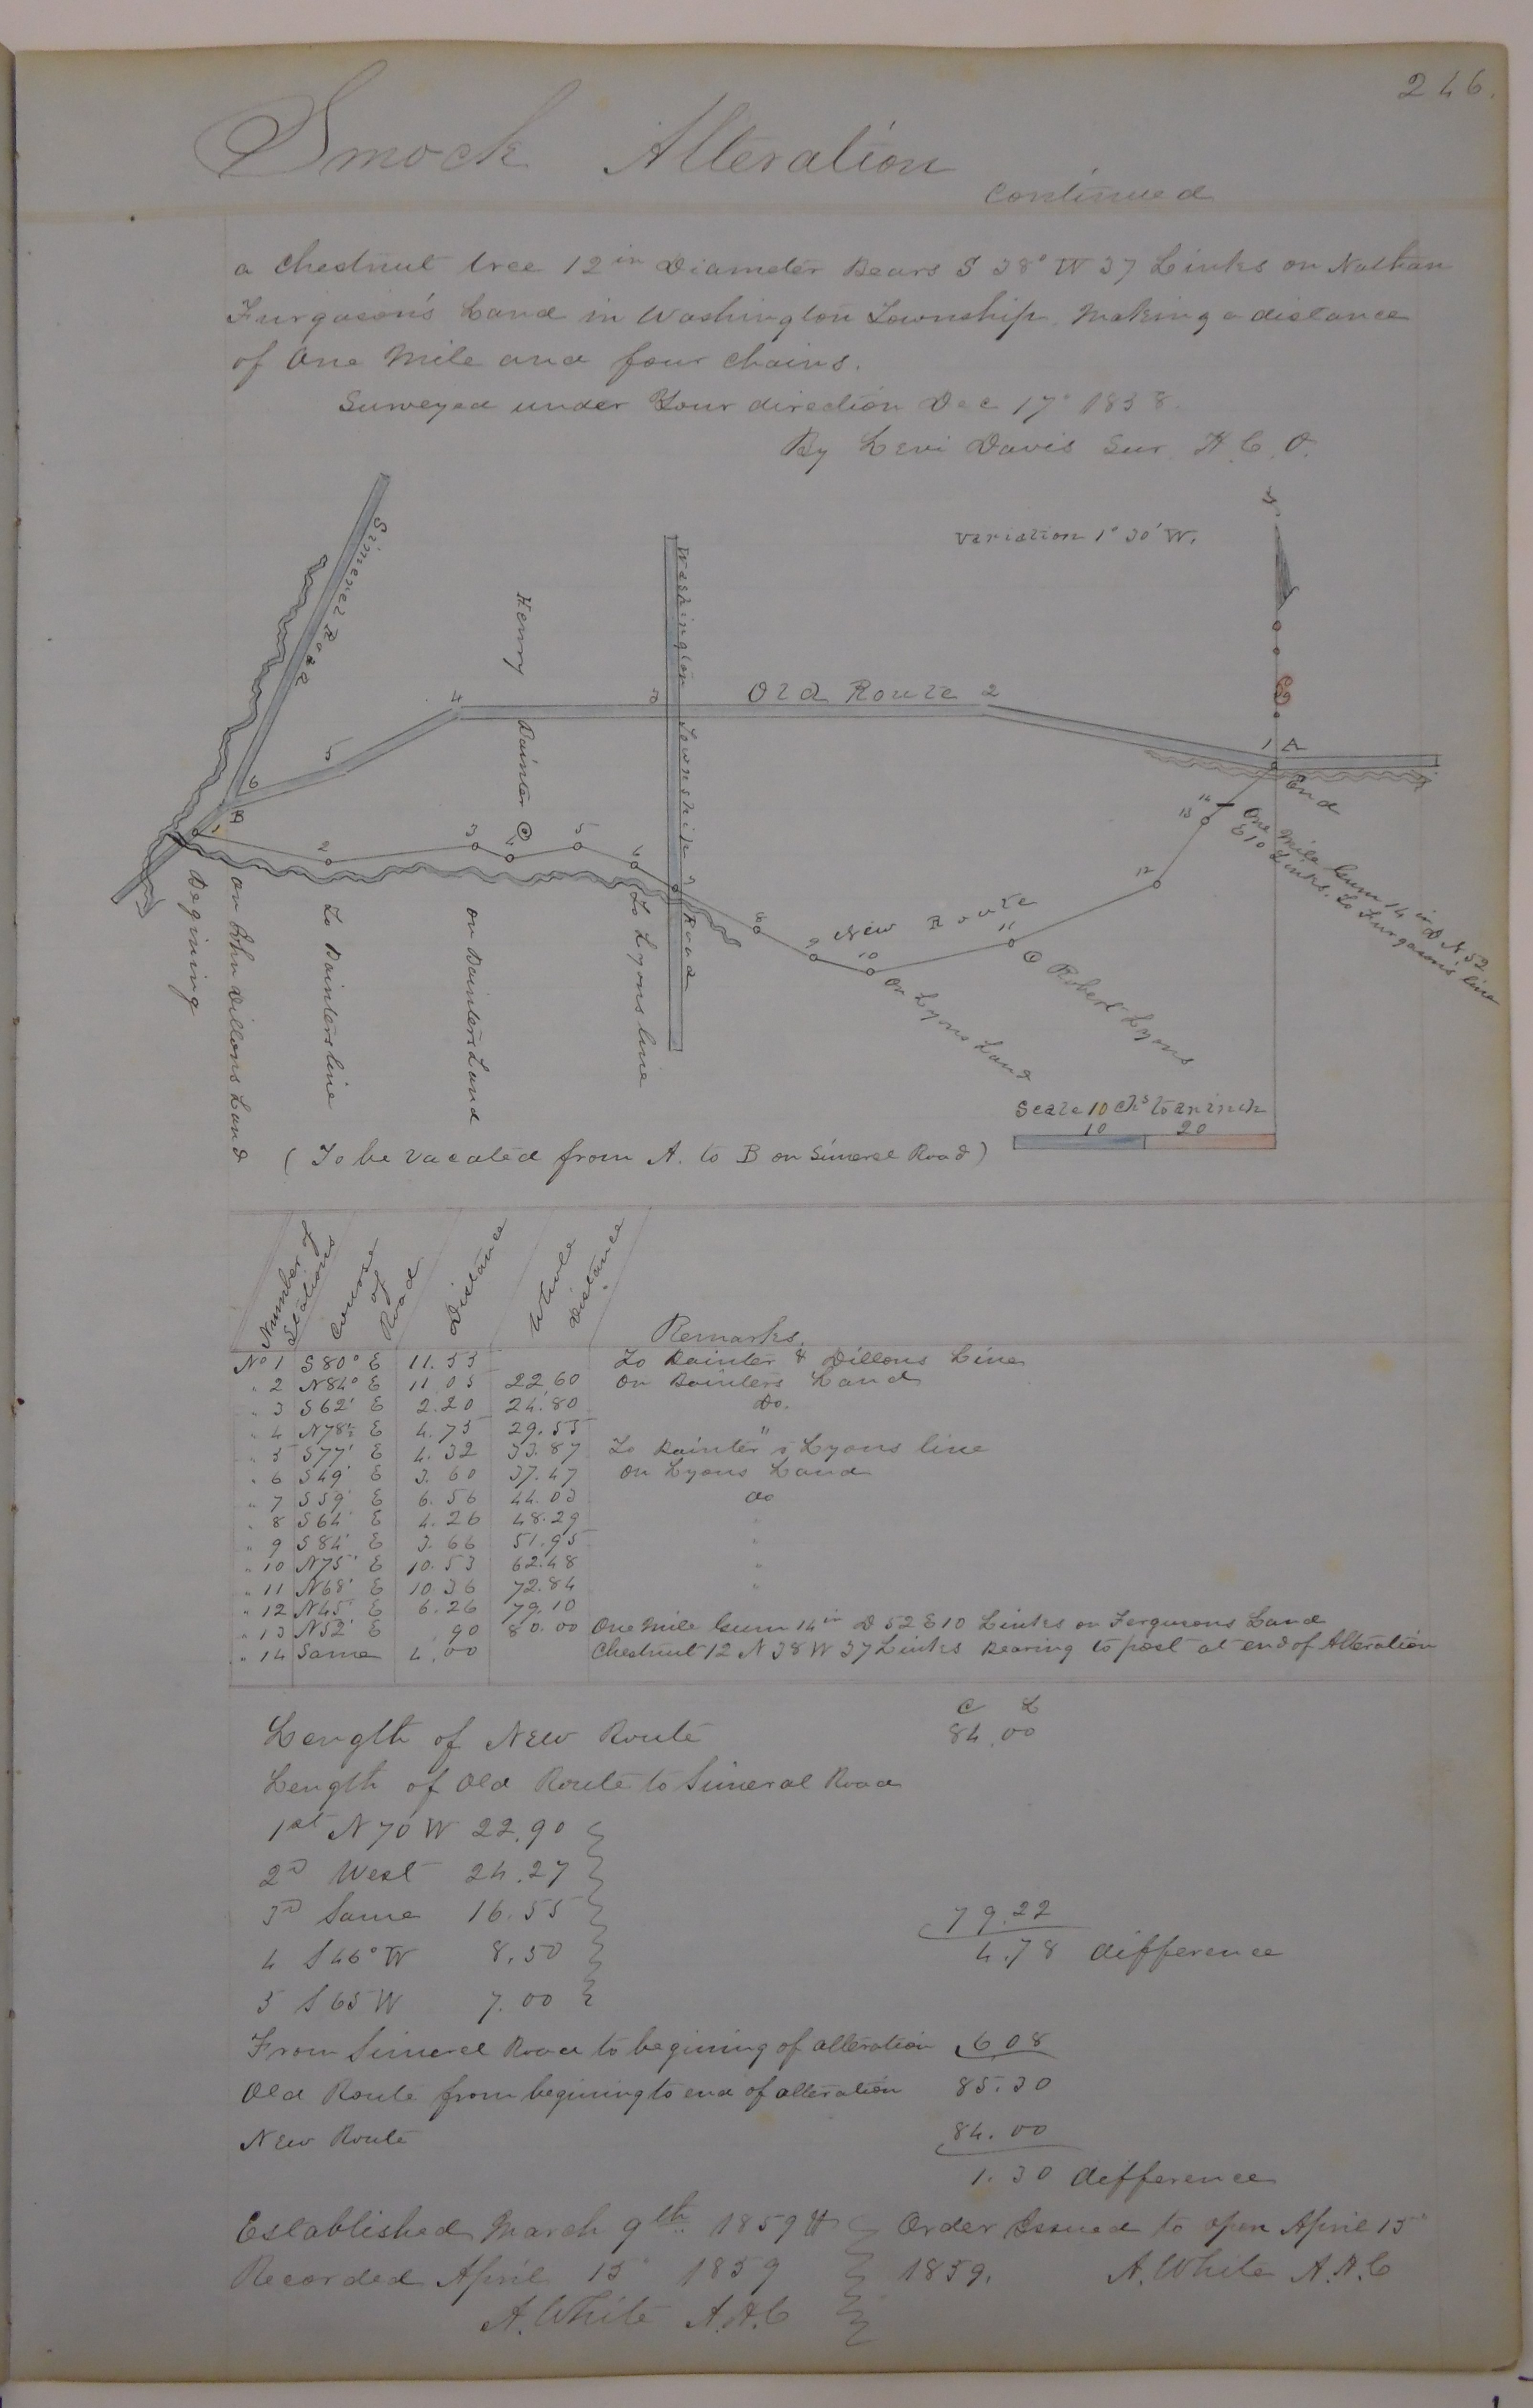 246.
Smock Alteration
Continued
a Chestnut tree 12 in Diameter Bears S 38° W 37 Links on Nathan
Furgason's Land in Washington Township. Making a distance
of One Mile and four chains.
Surveyed under Your direction Dec 17° 1858.
By Levi Davis Sur. H. C. O.
Variation 1° 30' W.
Simerel Road
Henry Painter
Washington Township Road
Old Route
New Route
1 A
2
3
4
5
6
B
End
1
2
3
4
5
6
7
8
9
10
11
12
13
14
One Mile Gum 14 in D N 52
E 10 Links. To Furgason's line
Robert Lyons
On Lyons Land
To Lyons line
On Painters Land
To Painters line
On John Dillons Land
Begining
Scale 10 chs to an inch
10 20
(To be Vacated from A. to B on Simerel Road)
Number of Stations Course of Road Distance Whole Distance Remarks.
No 1 S 80° E 11.55 To Painter & Dillons Line
" 2 N 84° E 11.05 22.60 On Painters Land
" 3 S 62° E 2.20 24.80 Do.
" 4 N 78½ E 4.75 29.55 "
" 5 S 77° E 4.32 33.87 To Painter & Lyons line
" 6 S 49° E 3.60 37.47 On Lyons Land
" 7 S 59° E 6.56 44.03 Do
" 8 S 64° E 4.26 48.29 "
" 9 S 84° E 3.66 51.95 "
" 10 N 75° E 10.53 62.48 "
" 11 N 68° E 10.36 72.84 "
" 12 N 45° E 6.26 79.10
" 13 N 52° E .90 80.00 One Mile Gum 14 in D 52 E 10 Links on Fergusons Land
" 14 Same 4.00 Chestnut 12 N 38 W 37 Links Bearing to post at end of Alteration
C L
Length of New Route 84.00
Length of Old Route to Simeral Road
1st N 70 W 22.90
2D West 24.27
3D Same 16.55 79.22
4 S 46° W 8.50 4.78 difference
5 S 65 W 7.00
From Simerel Road to begining of alteration 6 08
Old Route from begining to end of alteration 85.30
New Route 84.00
1.30 difference
Established March 9th 1859 Order Issued to open April 15°
Recorded April 15° 1859 1859. A. White A.A.C
A. White A.A.C